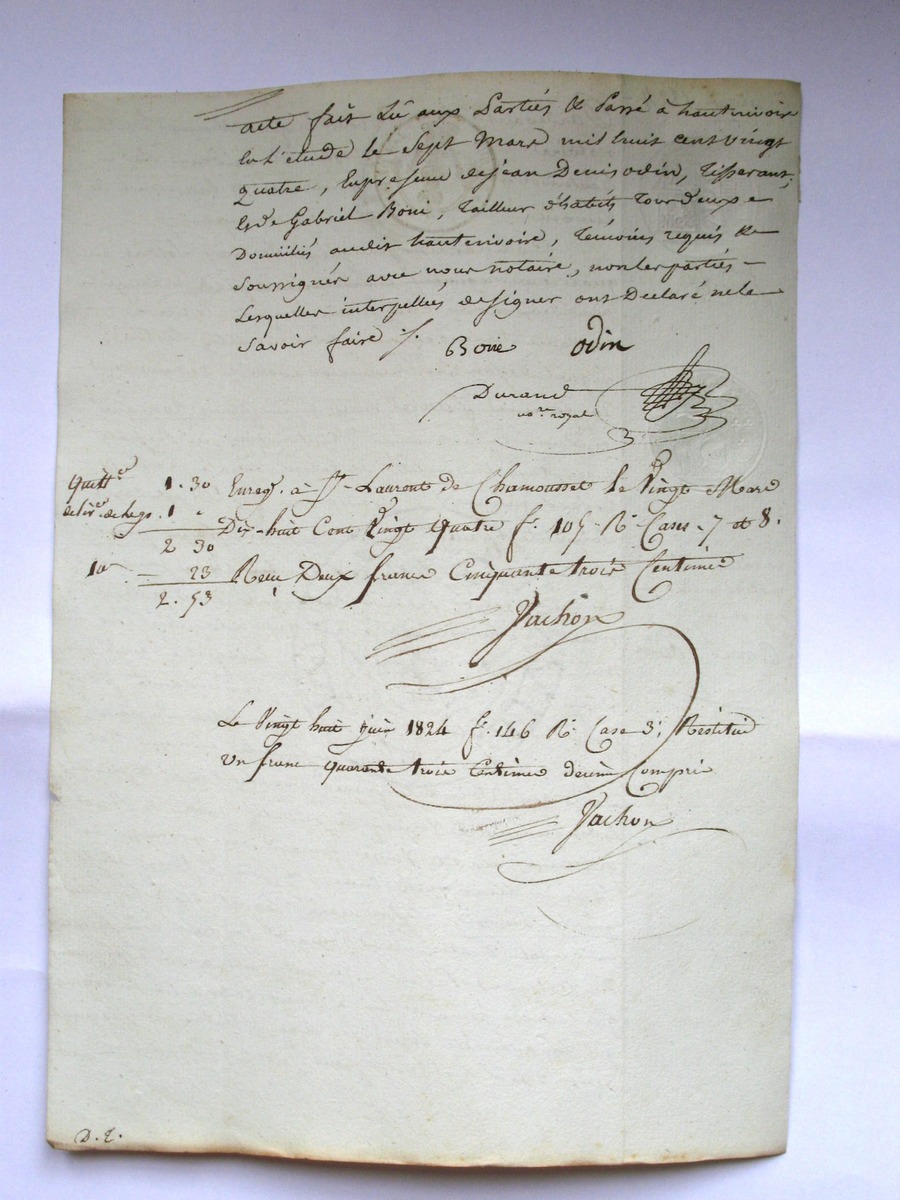 acte fait Lû aux Parties & Passé à hauterivoire
En L'étude le Sept Mars mil huit cent vingt
quatre, En presence de jean Denis odin, Tisserant,
Et de Gabriel Boni, Tailleur d'habits Tous deux
Domiciliés audit hauterivoire, Témoins requis &
Soussignés avec nous notaire, non les parties
Lesquelles interpellées de signer ont Declaré ne le
Savoir faire ./.
Bonie odin
Durand
no.re royal
quitt.ce 1.30 Enreg. à St Laurent de Chamousset le Vingt Mars
deliv.ce de legs. 1 " Dix-huit Cent Vingt quatre f.o 105 R.o Cases 7 et 8.
2 30
10e 23 Recu Deux francs Cinquante trois Centimes
2.53
Vachon
Le Vingt huit juin 1824 f.o 146 R.o Case 3, Restitué
un franc quarante trois Centimes decime Compris
Vachon